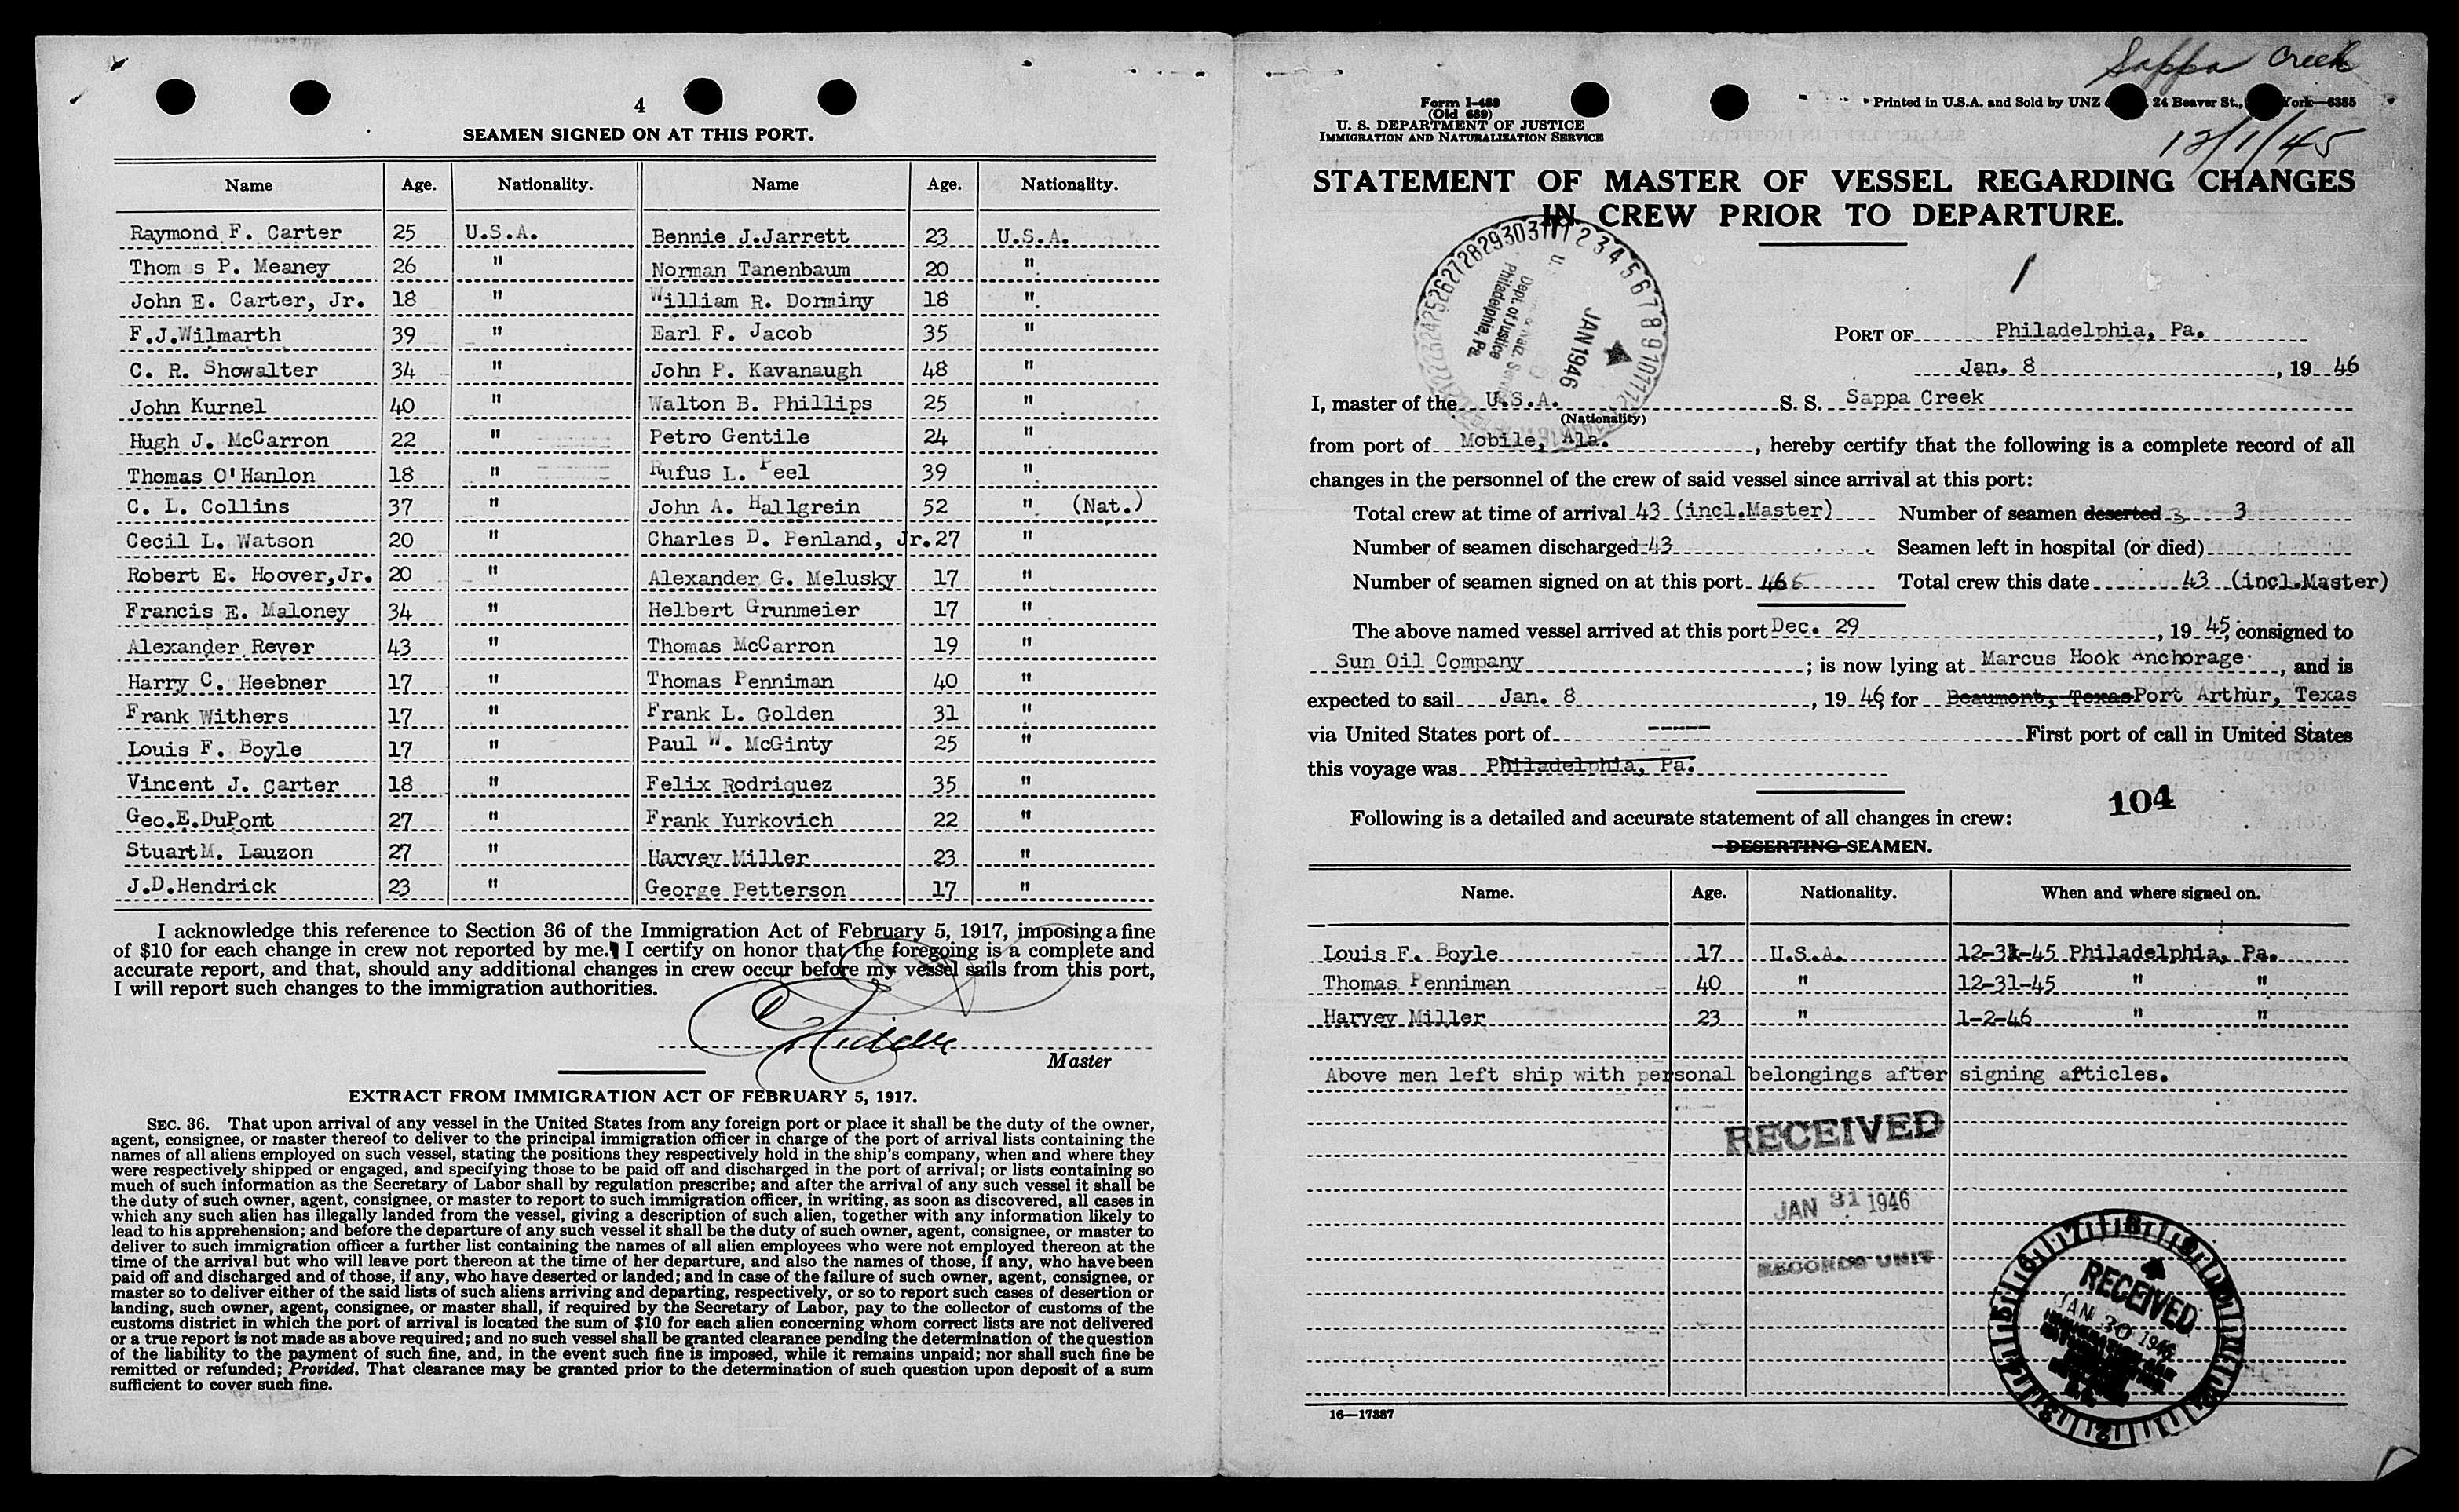 4
SEAMEN SIGNED ON AT THIS PORT.
Name Age. Nationality. Name Age. Nationality.
Raymond F. Carter 25 U.S.A. Bennie J.Jarrett 23 U.S.A.
Thom s P. Meaney 26 " Norman Tanenbaum 20 "
John E. Carter, Jr. 18 " William R. Dorminy 18 "
F.J.Wilmarth 39 " Earl F. Jacob 35 "
C. R. Showalter 34 " John P. Kavanaugh 48 "
John Kurnel 40 " Walton B. Phillips 25 "
Hugh J. McCarron 22 " Petro Gentile 24 "
Thomas O'Hanlon 18 " Rufus L. Peel 39 "
C. L. Collins 37 " John A. Hallgrein 52 " (Nat.)
Cecil L. Watson 20 " Charles D. Penland, Jr.27 "
Robert E. Hoover,Jr. 20 " Alexander G. Melusky 17 "
Francis E. Maloney 34 " Helbert Grunmeier 17 "
Alexander Reyer 43 " Thomas McCarron 19 "
Harry C. Heebner 17 " Thomas Penniman 40 "
Frank Withers 17 " Frank L. Golden 31 "
Louis F. Boyle 17 " Paul W. McGinty 25 "
Vincent J. Carter 18 " Felix Rodriquez 35 "
Geo.E.DuPont 27 " Frank Yurkovich 22 "
StuartM. Lauzon 27 " Harvey Miller 23 "
J.D.Hendrick 23 " George Petterson 17 "
I acknowledge this reference to Section 36 of the Immigration Act of February 5, 1917, imposing a fine
of $10 for each change in crew not reported by me. I certify on honor that the foregoing is a complete and
accurate report, and that, should any additional changes in crew occur before my vessel sails from this port,
I will report such changes to the immigration authorities.
Master
EXTRACT FROM IMMIGRATION ACT OF FEBRUARY 5, 1917.
SEC. 36. That upon arrival of any vessel in the United States from any foreign port or place it shall be the duty of the owner,
agent, consignee, or master thereof to deliver to the principal immigration officer in charge of the port of arrival lists containing the
names of all aliens employed on such vessel, stating the positions they respectively hold in the ship's company, when and where they
were respectively shipped or engaged, and specifying those to be paid off and discharged in the port of arrival; or lists containing so
much of such information as the Secretary of Labor shall by regulation prescribe; and after the arrival of any such vessel it shall be
the duty of such owner, agent, consignee, or master to report to such immigration officer, in writing, as soon as discovered, all cases in
which any such alien has illegally landed from the vessel, giving a description of such alien, together with any information likely to
lead to his apprehension; and before the departure of any such vessel it shall be the duty of such owner, agent, consignee, or master to
deliver to such immigration officer a further list containing the names of all alien employees who were not employed thereon at the
time of the arrival but who will leave port thereon at the time of her departure, and also the names of those, if any, who have been
paid off and discharged and of those, if any, who have deserted or landed; and in case of the failure of such owner, agent, consignee, or
master so to deliver either of the said lists of such aliens arriving and departing, respectively, or so to report such cases of desertion or
landing, such owner, agent, consignee, or master shall, if required by the Secretary of Labor, pay to the collector of customs of the
customs district in which the port of arrival is located the sum of $10 for each alien concerning whom correct lists are not delivered
or a true report is not made as above required; and no such vessel shall be granted clearance pending the determination of the question
of the liability to the payment of such fine, and, in the event such fine is imposed, while it remains unpaid; nor shall such fine be
remitted or refunded; Provided, That clearance may be granted prior to the determination of such question upon deposit of a sum
sufficient to cover such fine.
Sappa Creek
Form I-489
(Old 689)
U. S. DEPARTMENT OF JUSTICE
IMMIGRATION AND NATURALIZATION SERVICE
Printed in U.S.A. and Sold by UNZ 24 Beaver St., York—6385
12/1/45
STATEMENT OF MASTER OF VESSEL REGARDING CHANGES
IN CREW PRIOR TO DEPARTURE.
Dept. of Justice
Philadelphia, Pa.
JAN 1946
PORT OF Philadelphia, Pa.
Jan. 8, 19 46
I, master of the U.S.A. S. S. Sappa Creek
(Nationality)
from port of Mobile, Ala., hereby certify that the following is a complete record of all
changes in the personnel of the crew of said vessel since arrival at this port:
Total crew at time of arrival 43 (incl.Master) Number of seamen deserted 3 3
Number of seamen discharged 43 Seamen left in hospital (or died)
Number of seamen signed on at this port 46 Total crew this date 43 (incl.Master)
The above named vessel arrived at this port Dec. 29, 19 45, consigned to
Sun Oil Company; is now lying at Marcus Hook Anchorage, and is
expected to sail Jan. 8, 19 46, for Beaumont, Texas Port Arthur, Texas
via United States port of ---- First port of call in United States
this voyage was Philadelphia, Pa.
104
Following is a detailed and accurate statement of all changes in crew:
DESERTING SEAMEN.
Name. Age. Nationality. When and where signed on.
Louis F. Boyle 17 U.S.A. 12-31-45 Philadelphia, Pa.
Thomas Penniman 40 " 12-31-45 " "
Harvey Miller 23 " 1-2-46 " "
Above men left ship with personal belongings after signing articles.
RECEIVED
JAN 31 1946
RECORDS UNIT
RECEIVED
JAN 30 1946
16—17387